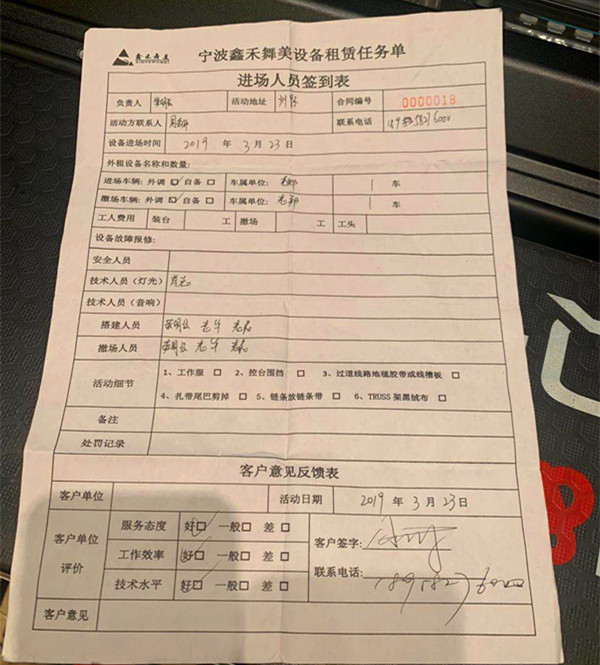 鑫禾舞美
XINHEWUMEI
宁波鑫禾舞美设备租赁任务单
进场人员签到表
负责人 活动地址 合同编号 0000018
活动方联系人 联系电话
设备进场时间 2019 年 3 月 23 日
外租设备名称和数量:
进场车辆: 外调 自备 车属单位: 1 车
撤场车辆: 外调 自备 车属单位: 1 车
工人费用 装台 工 撤场 工 工头
设备故障报修:
安全人员
技术人员(灯光)
技术人员(音响)
搭建人员
撤场人员
活动细节 1、工作服 □ 2、控台围挡 □ 3、过道线路地毯胶带或线槽板 □
4、扎带尾巴剪掉 □ 5、链条放链条带 □ 6、TRUSS 架黑绒布 □
备注
处罚记录
客户意见反馈表
客户单位 活动日期 2019 年 3 月 23 日
客户单位评价 服务态度 好 一般□ 差 □
工作效率 好 一般□ 差 □
技术水平 好 一般□ 差 □
客户签字:
联系电话:
客户意见